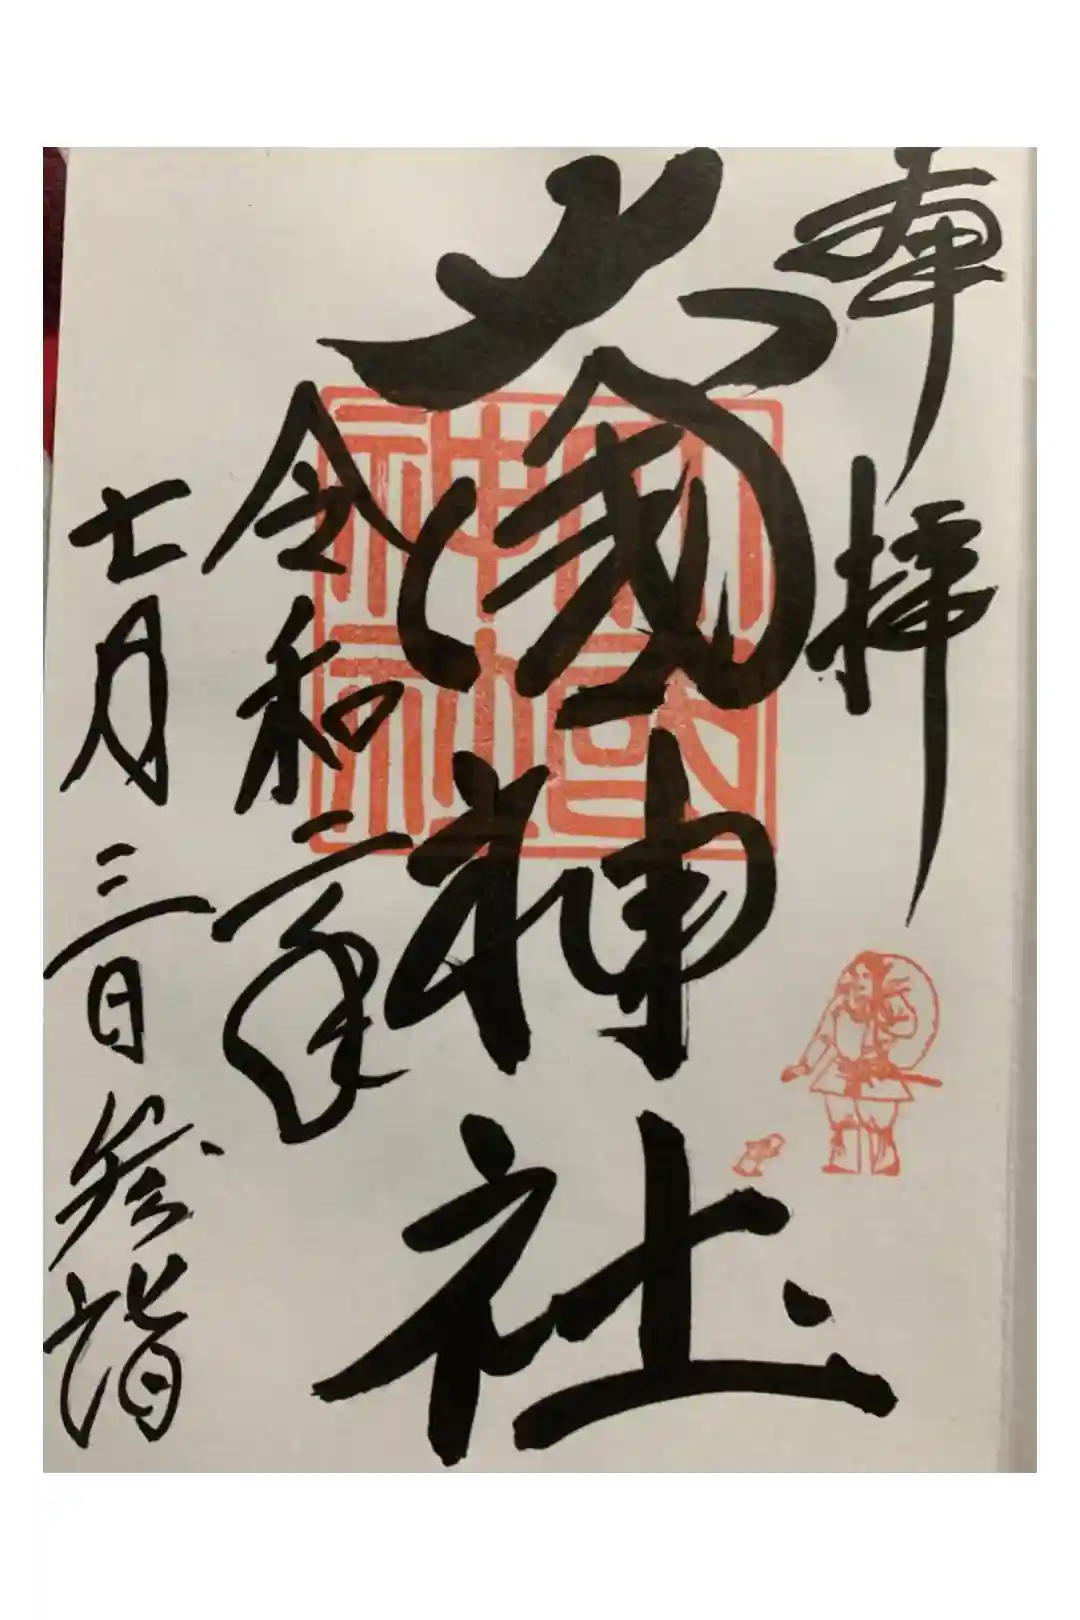 奉拝
大國神社
令和二年
七月三日参詣
大國
神社